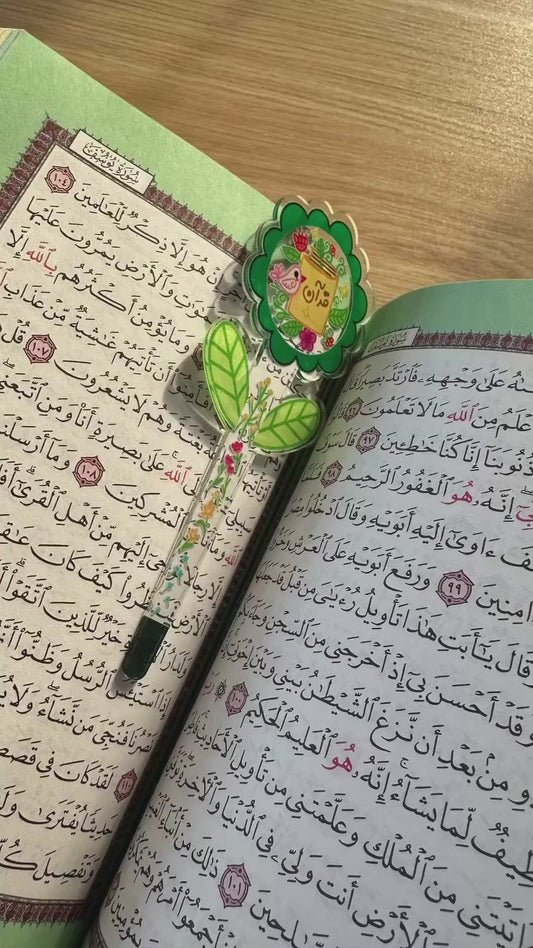 سُورَةُ يُوسُفَ
عَلَىٰ وَجْهِهِۦ فَٱرْتَدَّ بَصِيرًا
أَعْلَمُ مِنَ ٱللَّهِ مَا لَا تَعْلَمُونَ ٩٦
ذُنُوبَنَآ إِنَّا كُنَّا خَٰطِـِٔينَ ٩٧ قَالَ سَوْفَ
إِنَّهُۥ هُوَ ٱلْغَفُورُ ٱلرَّحِيمُ ٩٨
ءَاوَىٰٓ إِلَيْهِ أَبَوَيْهِ وَقَالَ ٱدْخُلُوا۟ مِصْرَ
ءَامِنِينَ ٩٩ وَرَفَعَ أَبَوَيْهِ عَلَى ٱلْعَرْشِ
وَقَالَ يَٰٓأَبَتِ هَٰذَا تَأْوِيلُ رُءْيَٰىَ مِن قَبْلُ قَدْ جَعَلَهَا
وَقَدْ أَحْسَنَ بِىٓ إِذْ أَخْرَجَنِى مِنَ ٱلسِّجْنِ وَجَآءَ
مِنۢ بَعْدِ أَن نَّزَغَ ٱلشَّيْطَٰنُ بَيْنِى وَبَيْنَ إِخْوَتِىٓ
لَطِيفٌ لِّمَا يَشَآءُ إِنَّهُۥ هُوَ ٱلْعَلِيمُ ٱلْحَكِيمُ ١٠٠
ءَاتَيْتَنِى مِنَ ٱلْمُلْكِ وَعَلَّمْتَنِى مِن تَأْوِيلِ ٱلْأَحَادِيثِ
وَٱلْأَرْضِ أَنتَ وَلِىِّۦ فِى ٱلدُّنْيَا وَٱلْءَاخِرَةِ
١٠١ ذَٰلِكَ مِنْ أَنۢبَآءِ
أَجْمَعُوٓا۟ أَمْرَهُمْ وَهُمْ
سُورَةُ يُوسُفَ
هُوَ إِلَّا ذِكْرٌ لِّلْعَٰلَمِينَ ١٠٤
وَٱلْأَرْضِ يَمُرُّونَ عَلَيْهَا
وَمَا يُؤْمِنُ أَكْثَرُهُم بِٱللَّهِ إِلَّا
أَن تَأْتِيَهُمْ غَٰشِيَةٌ مِّنْ عَذَابِ
وَهُمْ لَا يَشْعُرُونَ ١٠٧ قُلْ
ٱللَّهِ عَلَىٰ بَصِيرَةٍ أَنَا۠ وَمَنِ ٱتَّبَعَنِى
ٱلْمُشْرِكِينَ ١٠٨ وَمَآ أَرْسَلْنَا
إِلَيْهِم مِّنْ أَهْلِ ٱلْقُرَىٰٓ
كَيْفَ كَانَ
خَيْرٌ لِّلَّذِينَ ٱتَّقَوْا۟
ٱلرُّسُلُ وَظَنُّوٓا۟
نَصْرُنَا فَنُجِّىَ مَن نَّشَآءُ وَلَا
لَقَدْ كَانَ فِى
حَدِيثًا يُفْتَرَىٰ
وَتَفْصِيلَ
قرآن